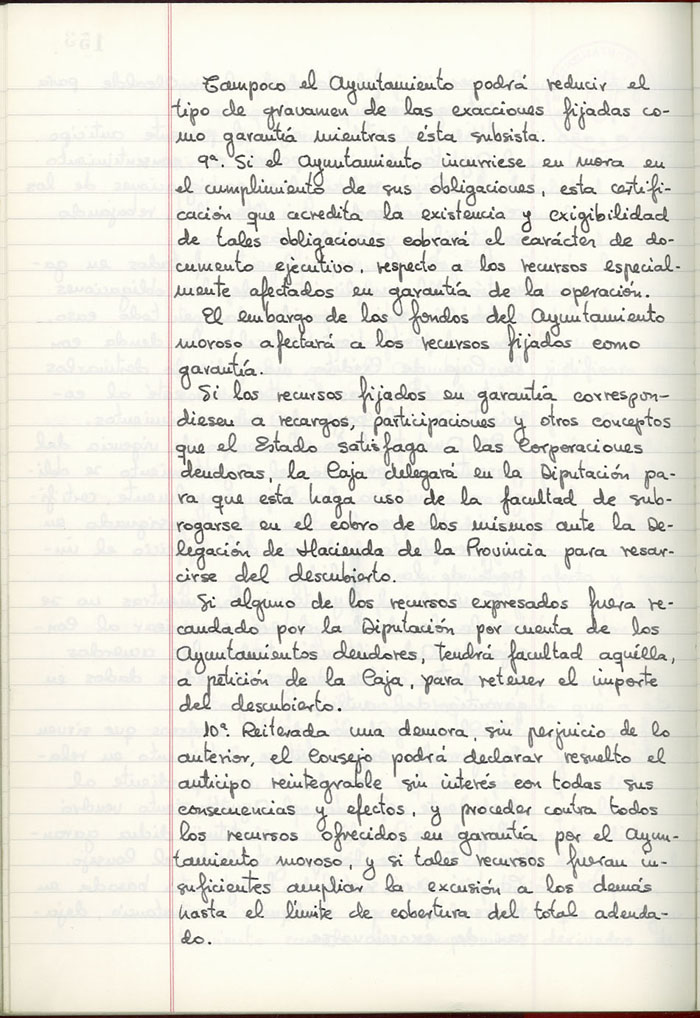 Tampoco el Ayuntamiento podrá reducir el
tipo de gravamen de las exacciones fijadas co-
mo garantía mientras ésta subsista.
9ª. Si el Ayuntamiento incurriese en mora en
el cumplimiento de sus obligaciones, esta certifi-
cación que acredita la existencia y exigibilidad
de tales obligaciones cobrará el carácter de do-
cumento ejecutivo, respecto a los recursos especial-
mente afectados en garantía de la operación.
El embargo de los fondos del Ayuntamiento
moroso afectará a los recursos fijados como
garantía.
Si los recursos fijados en garantía correspon-
diesen a recargos, participaciones y otros conceptos
que el Estado satisfaga a las Corporaciones
deudoras, la Caja delegará en la Diputación pa-
ra que esta haga uso de la facultad de sub-
rogarse en el cobro de los mismos ante la De-
legación de Hacienda de la Provincia para resar-
cirse del descubierto.
Si alguno de los recursos expresados fuera re-
caudado por la Diputación por cuenta de los
Ayuntamientos deudores, tendrá facultad aquélla,
a petición de la Caja, para retener el importe
del descubierto.
10ª. Reiterada una demora, sin perjuicio de lo
anterior, el Consejo podrá declarar resuelto el
anticipo reintegrable sin interés con todas sus
consecuencias y efectos, y proceder contra todos
los recursos ofrecidos en garantía por el Ayun-
tamiento moroso, y si tales recursos fueran in-
suficientes ampliar la excusión a los demás
hasta el límite de cobertura del total adeuda-
do.